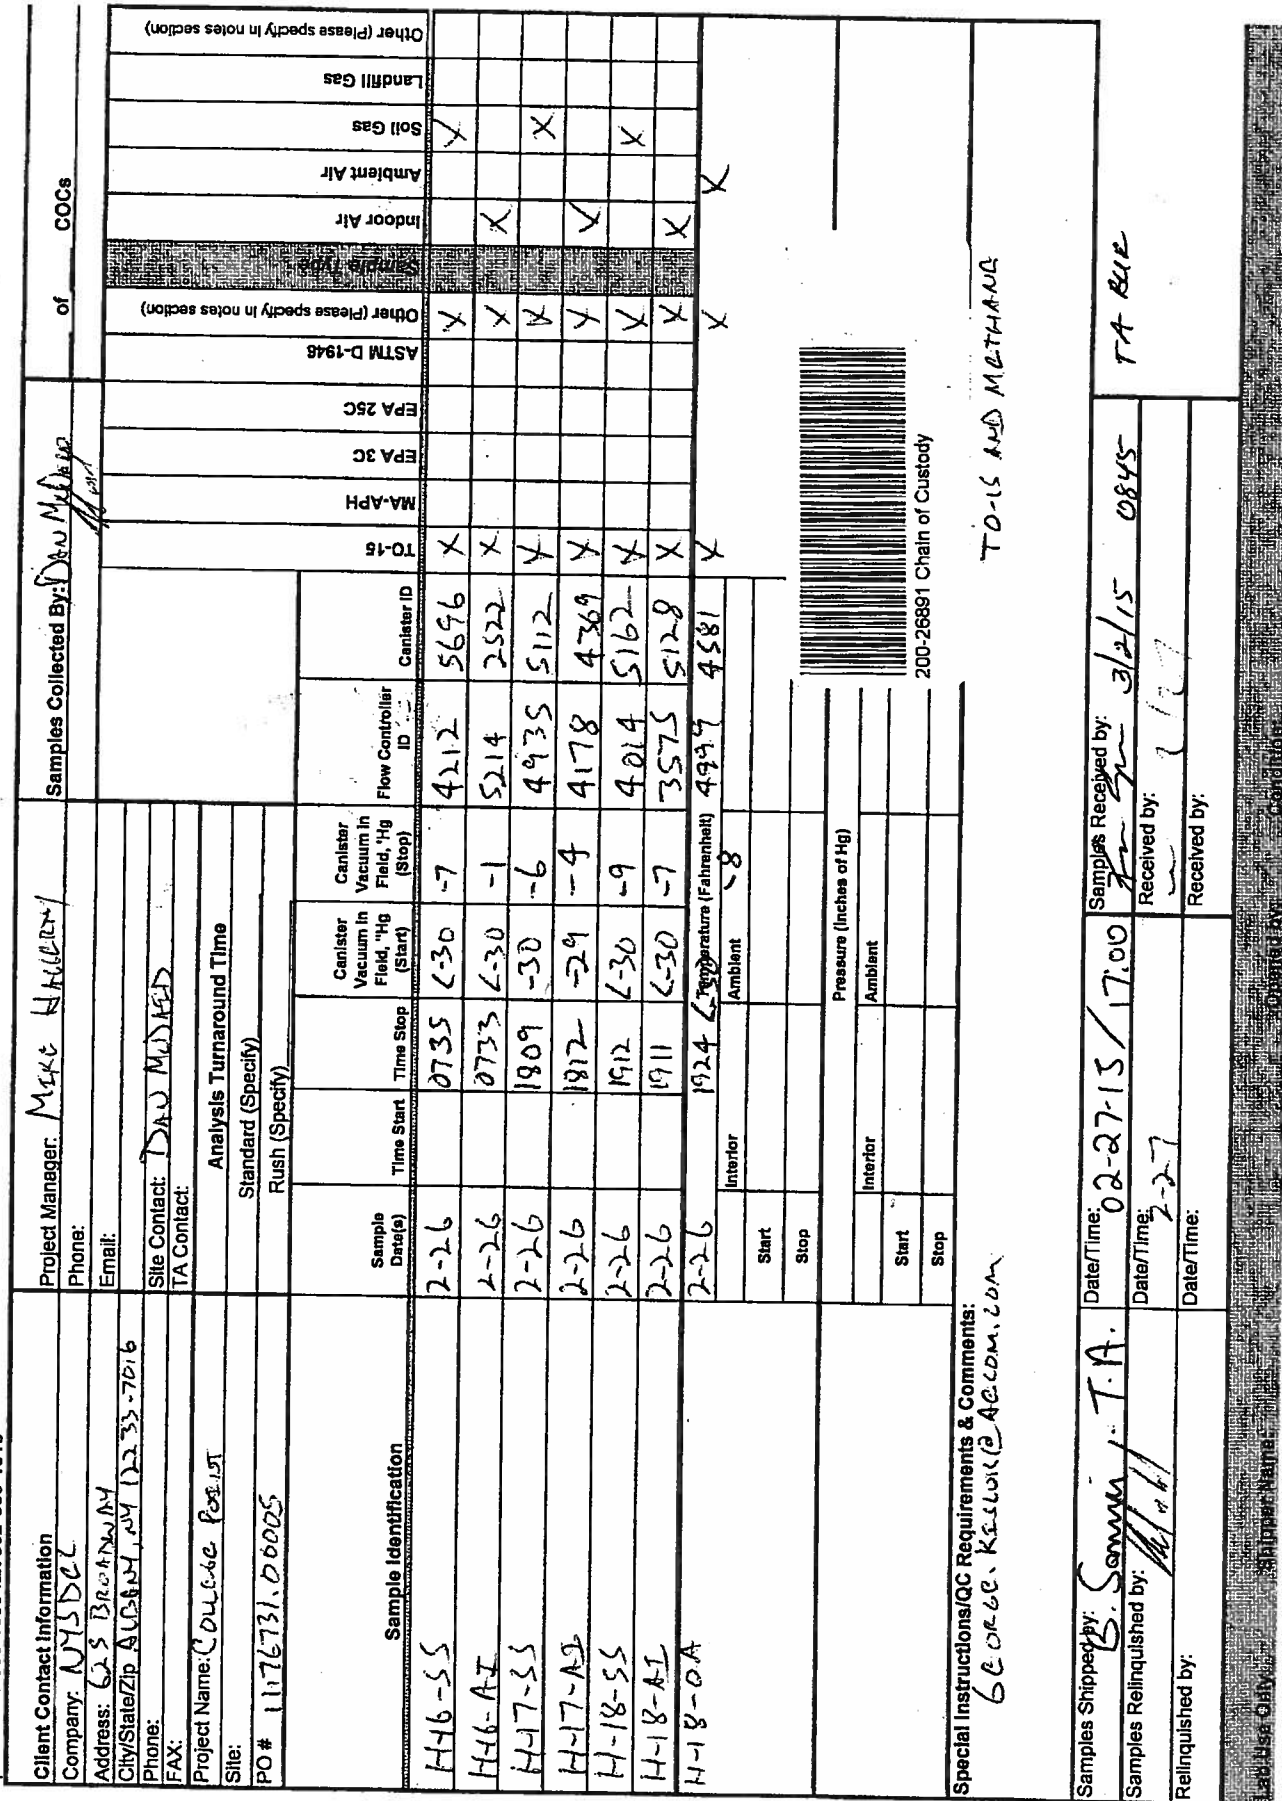 Client Contact Information
Company: NYSDEC
Address: 625 BROADWAY
City/State/Zip ALBANY, NY 12233-7016
Phone:
FAX:
Project Name: COLLEGE POINT
Site:
PO # 11176731.00005
Project Manager: MIKE HAGGERTY
Phone:
Email:
Site Contact: DAN McDAED
TA Contact:
Analysis Turnaround Time
Standard (Specify)
Rush (Specify)
Samples Collected By: DAN
of COCs
Sample Identification
Sample Date(s)
Time Start
Time Stop
Canister Vacuum in Field, "Hg (Start)
Canister Vacuum in Field, "Hg (Stop)
Flow Controller ID
Canister ID
TO-15
MA-APH
EPA 3C
EPA 25C
ASTM D-1946
Other (Please specify in notes section)
Sample Type
Indoor Air
Ambient Air
Soil Gas
Landfill Gas
Other (Please specify in notes section)
H-16-SS 2-26 0735 <-30 -7 4212 5696 X X X
H-16-AI 2-26 0733 <-30 -1 5214 2522 X X X
H-17-SS 2-26 1809 -30 -6 4935 5112 X X X
H-17-AI 2-26 1812 -29 -4 4178 4369 X X X
H-18-SS 2-26 1912 <-30 -9 4014 5162 X X X
H-18-AI 2-26 1911 <-30 -7 3575 5128 X X X
H-18-OA 2-26 1924 <-30 -8 4999 4581 X X X
Temperature (Fahrenheit)
Interior Ambient
Start
Stop
Pressure (Inches of Hg)
Interior Ambient
Start
Stop
200-26891 Chain of Custody
Special Instructions/QC Requirements & Comments:
GEORGE.KISLUK@AECOM.COM
TO-15 AND METHANE
Samples Shipped by: T.A.
Date/Time: 02-27-15 / 17:00
Samples Received by: 3/2/15 0845 TA BUR
Samples Relinquished by:
Date/Time: 2-27
Received by:
Relinquished by:
Date/Time:
Received by:
Lab Use Only Shipper Name: Opened by: Condition: